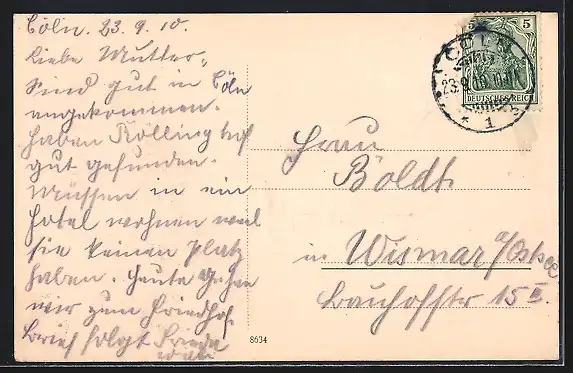 Cöln. 23. 9. 10.
Liebe Mutter,
Sind gut in Cöln
angekommen.
haben Rölling
gut gefunden.
Müssen in ein
Hotel wohnen weil
sie keinen Platz
haben. Heute gehen
wir zum Friedhof.
Brief folgt Frieda
5
5
CÖLN
DEUTSCHES REICH
* 1
Frau
Böldt.
in Wismar a/Ostsee
Bauhofstr 15 II.
8634